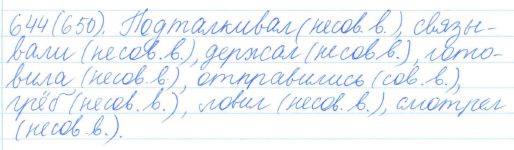 644(650). Подталкивал (несов.в.), связы-
вали (несов.в.), держал (несов.в.), гото-
вила (несов.в.), отправились (сов.в.),
грёб (несов.в.), ловил (несов.в.), смотрел
(несов.в.).